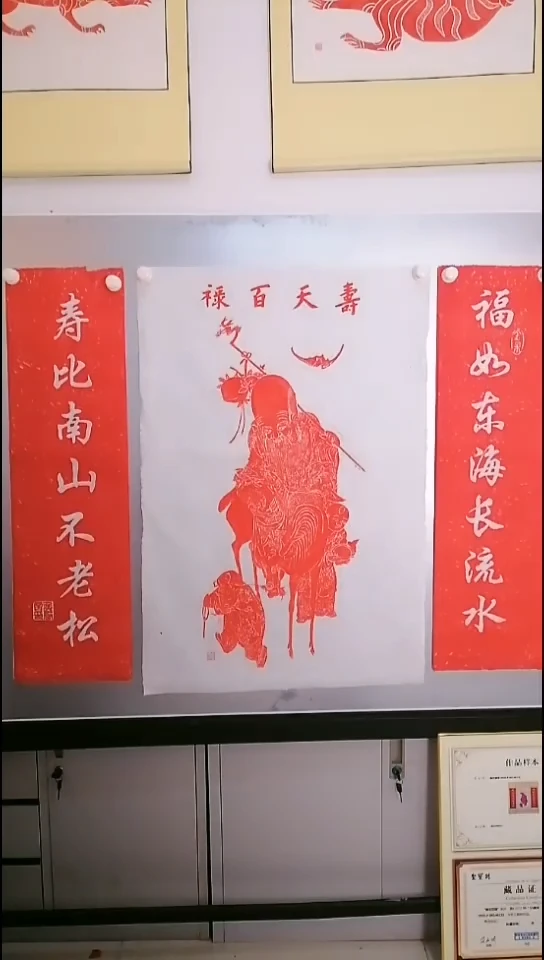 壽天百禄
福如东海长流水
寿比南山不老松
作品样本
藏品证